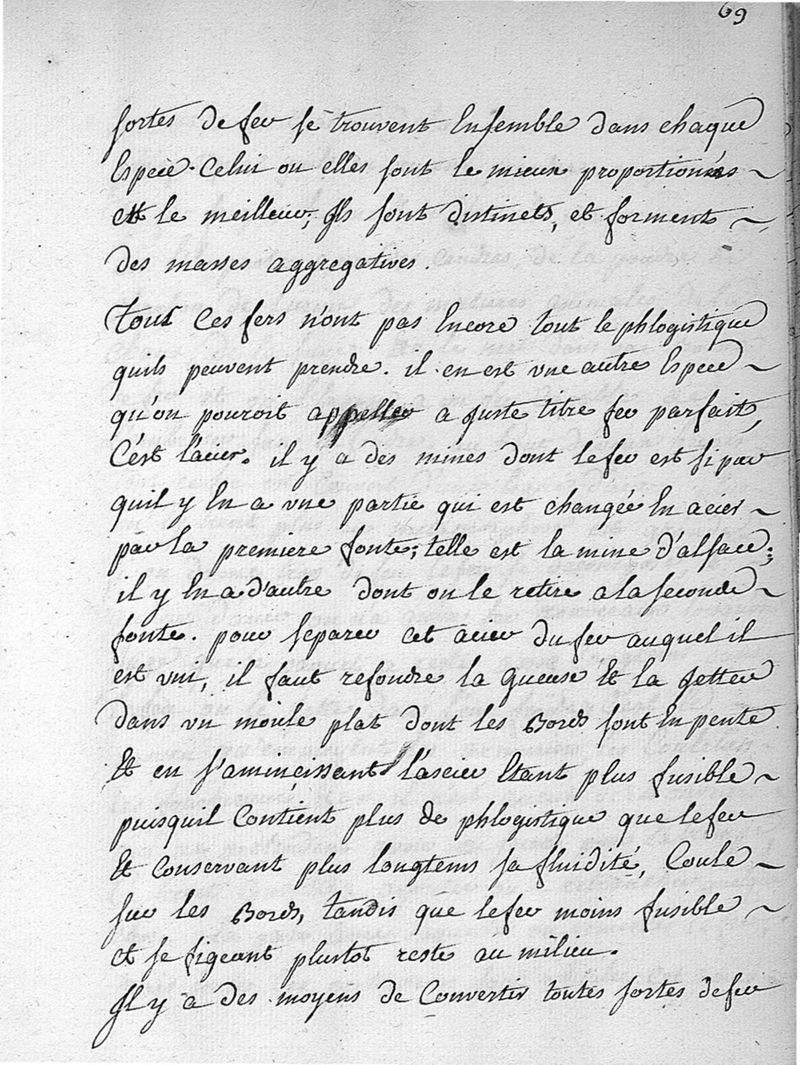 69
sortes de fer se trouvent Ensemble dans chaque
Espece. Celui ou elles sont le mieux proportionnés
est le meilleur, Ils sont distincts, et forment
des masses aggregatives.
Tout Ces fers n'ont pas Encore tout le phlogistique
quils peuvent prendre. il en est vne autre Espece
qu'on pouroit appeller a juste titre fer parfait,
C'est l'acier. il y a des mines dont le fer est si pur
quil y En a vne partie qui est changée En acier
par la premiere fonte; telle est la mine d'alsace;
il y En a d'autre dont on le retire a la seconde
fonte. pour separer cet acier du fer auquel il
est vni, il faut refondre la gueuse Et la Jetter
dans vn moule plat dont les Bords sont En pente
Et en s'aminçissant l'ascier Etant plus fusible
puisquil Contient plus de phlogistique que le fer
Et Conservant plus longtems sa fluidité, Coule
sur les Bords, tandis que le fer moins fusible
et se figeant plustot reste au milieu.
Il y a des moyens de Convertir toutes sortes de fer